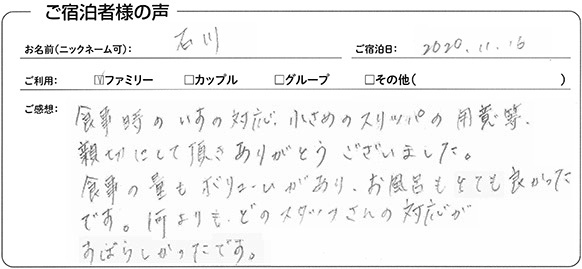 ご宿泊者様の声
お名前(ニックネーム可): 石川 ご宿泊日: 2020.11.16
ご利用: ☑ファミリー □カップル □グループ □その他( )
ご感想:
食事時のいすの対応、小さめのスリッパの用意等、
親切にして頂きありがとうございました。
食事の量もボリュームがあり、お風呂もとても良かった
です。何よりも、どのスタッフさんの対応が
すばらしかったです。